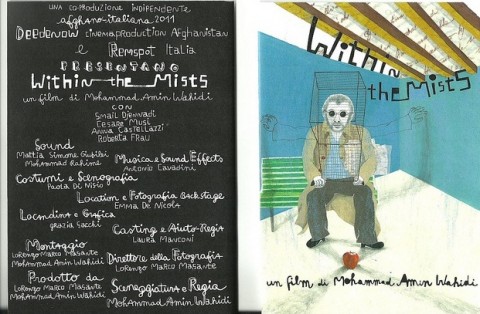 UNA CO-PRODUZIONE INDIPENDENTE
afghano-italiana 2011
Deedenow cinemaproduction Afghanistan
e Remspot Italia
PRESENTANO
Within the Mists
un film di Mohammad Amin Wahidi
CON
Smail Djennadi
Cesare Musi
Anna Castellazzi
Roberta Frau
Sound
Mattia Simone Giubilei
Mohammad Rahimi
Musica e Sound Effects
Antonio Cavadini
Costumi e Scenografia
Paola Di Nisio
Location e Fotografia Backstage
Emma De Nicola
Locandina e Grafica
Grazia Sacchi
Casting e Aiuto-Regia
Laura Manconi
Montaggio
Lorenzo Marco Masante
Mohammad Amin Wahidi
Direttore della Fotografia
Lorenzo Marco Masante
Prodotto da
Lorenzo Marco Masante
Mohammad Amin Wahidi
Sceneggiatura e Regia
Mohammad Amin Wahidi
Within
the Mists
un film di Mohammad Amin Wahidi